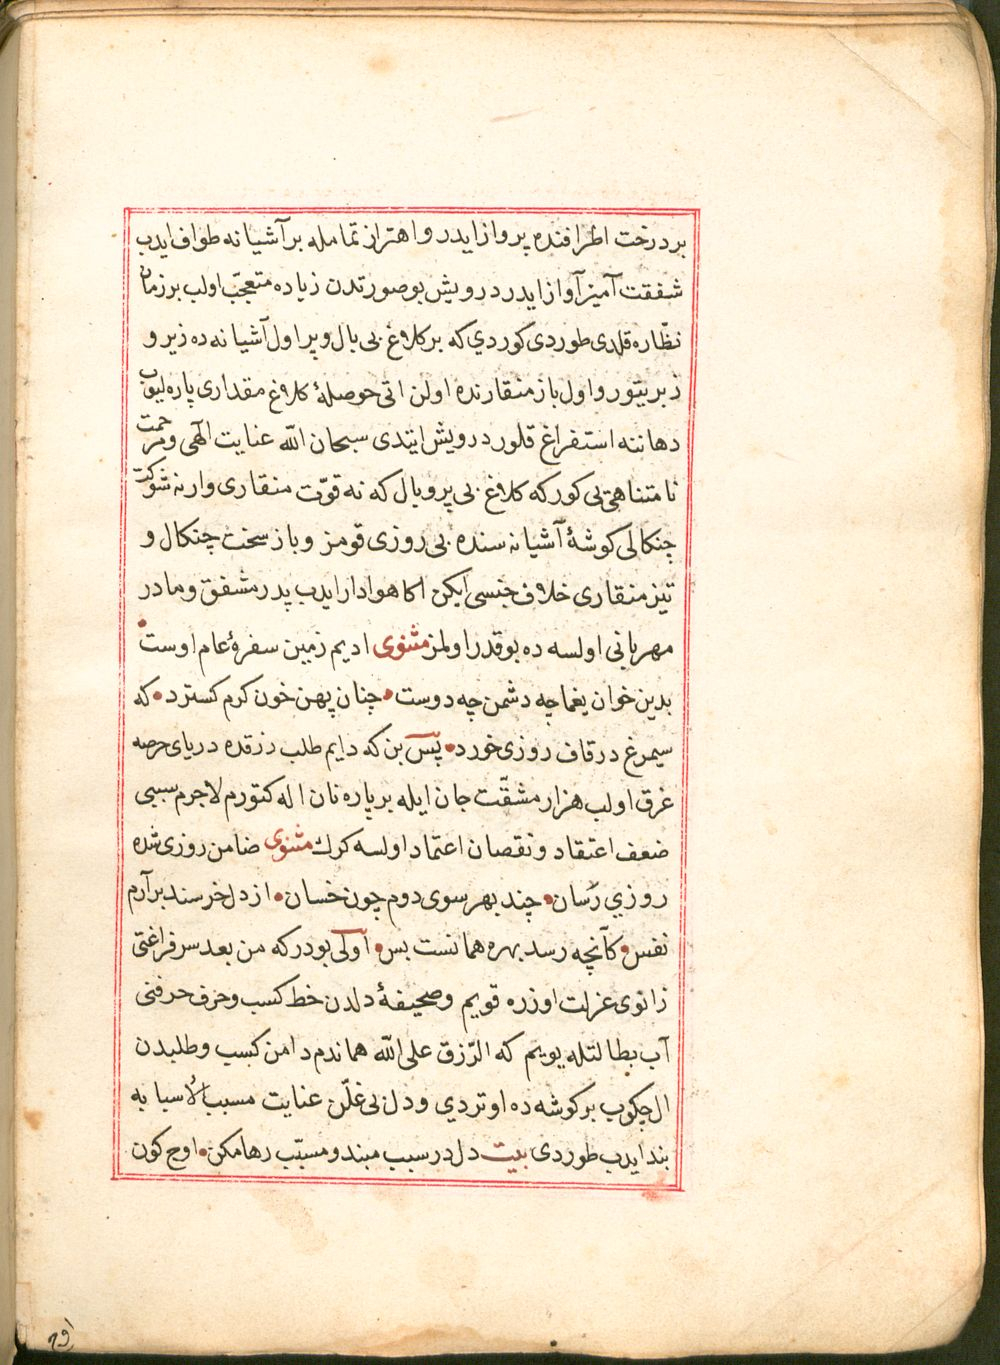 بر درخت اطرافنده پرواز ایدر و اهتراز تمامله بر آشیانه طواف ایدب
شفقت آمیز آواز ایدر درویش بو صورتدن زیاده متعجّب اولب بر زمان
نظّاره قلدی طوردی كوردي كه بر كلاغ بی بال و پر اول آشیانه ده زیر و
زبر یتور و اول باز منقارنده اولن اتی حوصلهٔ كلاغ مقداری پاره لیوب
دهاننه استفراغ قلور درویش ایتدی سبحان اللّه عنایت الٓهی و مرحمت
نامتناهی یی كور كه كلاغ بی پر و بال كه نه قوّت منقاری وار نه شوكت
چنكالی كوشهٔ آشیانه سنده بی روزی قومز و باز سخت چنكال و
تیز منقاری خلاف جنسی ایكن اكا هوادار ایدب پدر مشفق و مادر
مهربانی اولسه ده بو قدر اولمز مثنوی ادیم زمین سفرهٔ عام اوست
بدین خوان یغما چه دشمن چه دوست • چنان پهن خون كرم كسترد • كه
سیمرغ در قاف روزی خورد • پس بن كه دایم طلب رزقده دریای حرصه
غرق اولب هزار مشقّت جان ایله بر پاره نان اله كتورم لاجرم سببی
ضعف اعتقاد و نقصان اعتماد اولسه كرك مثنوی ضامن روزی شده
روزي رسان • چند بهر سوی دوم چون خسان • از دل خرسند برآرم
نفس • كآنچه رسد بهره همانست بس • اولی بودر كه من بعد سر فراغتی
زانوی عزلت اوزره قویم و صحیفهٔ دلدن خط كسب و حرف حرفتی
آب بطالتله یویم كه الرّزق علی اللّه هماندم دامن كسب و طلبدن
ال چكوب بر كوشه ده اوتردي و دل بی غلّن عنایت مسبب الاسبابه
بند ایدب طوردی بیت دل در سبب مبند و مسبّب رها مكن • اوج كون